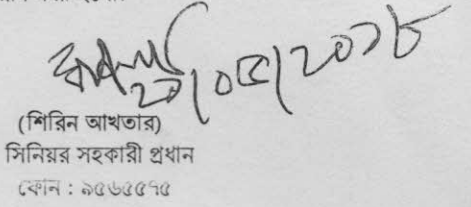 ২০/০৫/২০১৮
(শিরিন আখতার)
সিনিয়র সহকারী প্রধান
ফোন : ৯৫৬৫৫৭৫